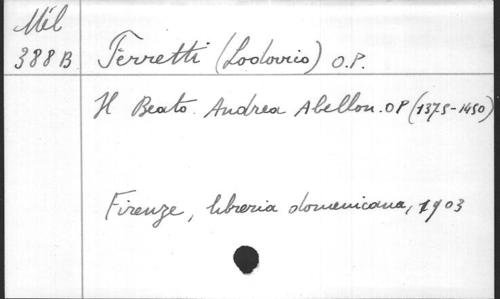 Mél
388 B
Ferretti (Lodovico) O.P.
Il Beato. Andrea Abellon. OP (1375-1450)
Firenze, libreria domenicana, 1903